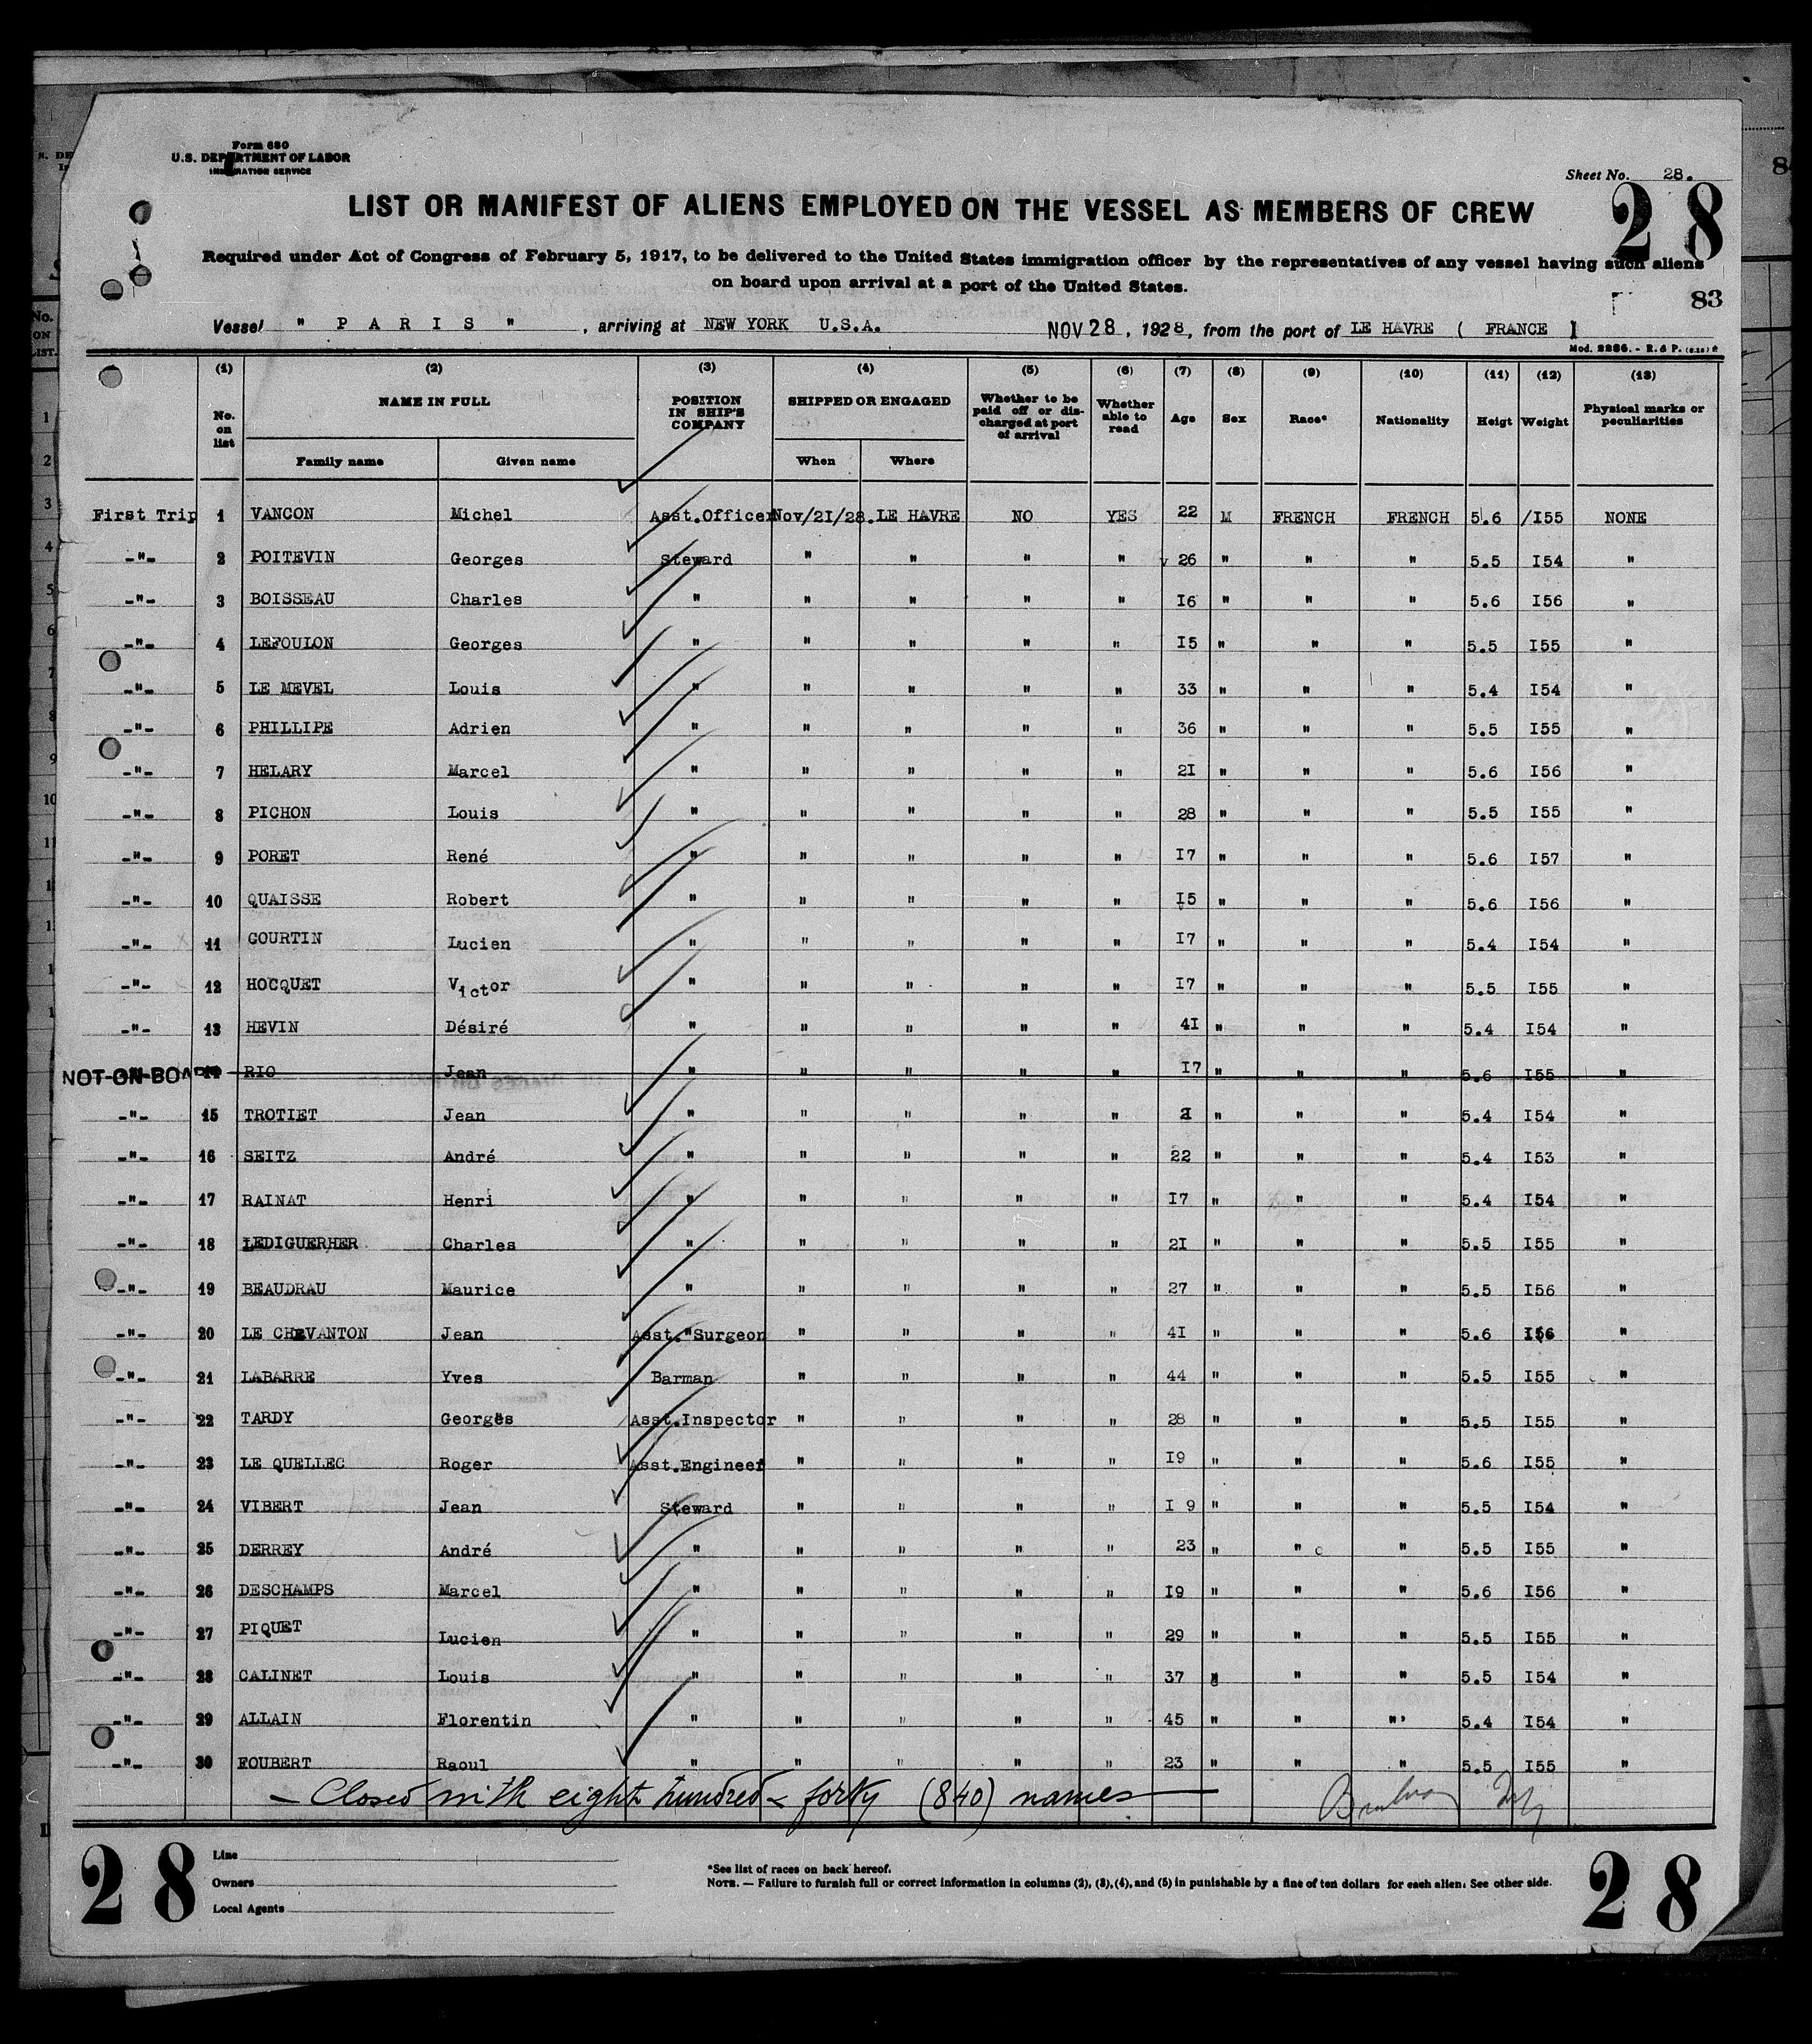 Form 680
U.S. DEPARTMENT OF LABOR
IMMIGRATION SERVICE
Sheet No. 28.
28
LIST OR MANIFEST OF ALIENS EMPLOYED ON THE VESSEL AS MEMBERS OF CREW
Required under Act of Congress of February 5, 1917, to be delivered to the United States immigration officer by the representatives of any vessel having such aliens
on board upon arrival at a port of the United States.
83
Vessel " P A R I S " , arriving at NEW YORK U.S.A. NOV 28 , 1928, from the port of LE HAVRE ( FRANCE )
Mod. 2286. - R. & P. (6.28) *
(1) (2) (3) (4) (5) (6) (7) (8) (9) (10) (11) (12) (13)
No. on list NAME IN FULL POSITION IN SHIP'S COMPANY SHIPPED OR ENGAGED Whether to be paid off or discharged at port of arrival Whether able to read Age Sex Race* Nationality Heigt Weight Physical marks or peculiarities
Family name Given name When Where
First Trip 1 VANCON Michel Asst.Officer Nov/21/28. LE HAVRE NO YES 22 M FRENCH FRENCH 5.6 /I55 NONE
-"- 2 POITEVIN Georges Steward " " " " 26 " " " 5.5 I54 "
-"- 3 BOISSEAU Charles " " " " " I6 " " " 5.6 I56 "
-"- 4 LEFOULON Georges " " " " " I5 " " " 5.5 I55 "
-"- 5 LE MEVEL Louis " " " " " 33 " " " 5.4 I54 "
-"- 6 PHILLIPE Adrien " " " " " 36 " " " 5.5 I55 "
-"- 7 HELARY Marcel " " " " " 2I " " " 5.6 I56 "
-"- 8 PICHON Louis " " " " " 28 " " " 5.5 I55 "
-"- 9 PORET René " " " " " I7 " " " 5.6 I57 "
-"- 10 QUAISSE Robert " " " " " I5 " " " 5.6 I56 "
-"- 11 COURTIN Lucien " " " " " I7 " " " 5.4 I54 "
-"- 12 HOCQUET Victor " " " " " I7 " " " 5.5 I55 "
-"- 13 HEVIN Désiré " " " " " 4I " " " 5.4 I54 "
NOT-ON-BOARD 14 RIO Jean " " " " " I7 " " " 5.6 I55 "
-"- 15 TROTIET Jean " " " " " " " " 5.4 I54 "
-"- 16 SEITZ André " " " " " 22 " " " 5.4 I53 "
-"- 17 RAINAT Henri " " " " " I7 " " " 5.4 I54 "
-"- 18 LEDIGUERHER Charles " " " " " 2I " " " 5.5 I55 "
-"- 19 BEAUDRAU Maurice " " " " " 27 " " " 5.5 I56 "
-"- 20 LE CHEVANTON Jean Asst."Surgeon " " " " 4I " " " 5.6 I56 "
-"- 21 LABARRE Yves Barman " " " " 44 " " " 5.5 I55 "
-"- 22 TARDY Georges Asst.Inspector " " " " 28 " " " 5.5 I55 "
-"- 23 LE QUELLEC Roger Asst.Engineer " " " " I9 " " " 5.6 I55 "
-"- 24 VIBERT Jean Steward " " " " I 9 " " " 5.5 I54 "
-"- 25 DERREY André " " " " " 23 " " " 5.5 I55 "
-"- 26 DESCHAMPS Marcel " " " " " I9 " " " 5.6 I56 "
-"- 27 PIQUET Lucien " " " " " 29 " " " 5.5 I55 "
-"- 28 CALINET Louis " " " " " 37 " " " 5.5 I54 "
-"- 29 ALLAIN Florentin " " " " " 45 " " " 5.4 I54 "
-"- 30 FOUBERT Raoul " " " " " 23 " " " 5.5 I55 "
— Closed with eight hundred & forty (840) names —
28
Line
Owners
Local Agents
*See list of races on back hereof.
NOTE. — Failure to furnish full or correct information in columns (2), (3), (4), and (5) in punishable by a fine of ten dollars for each alien. See other side.
28